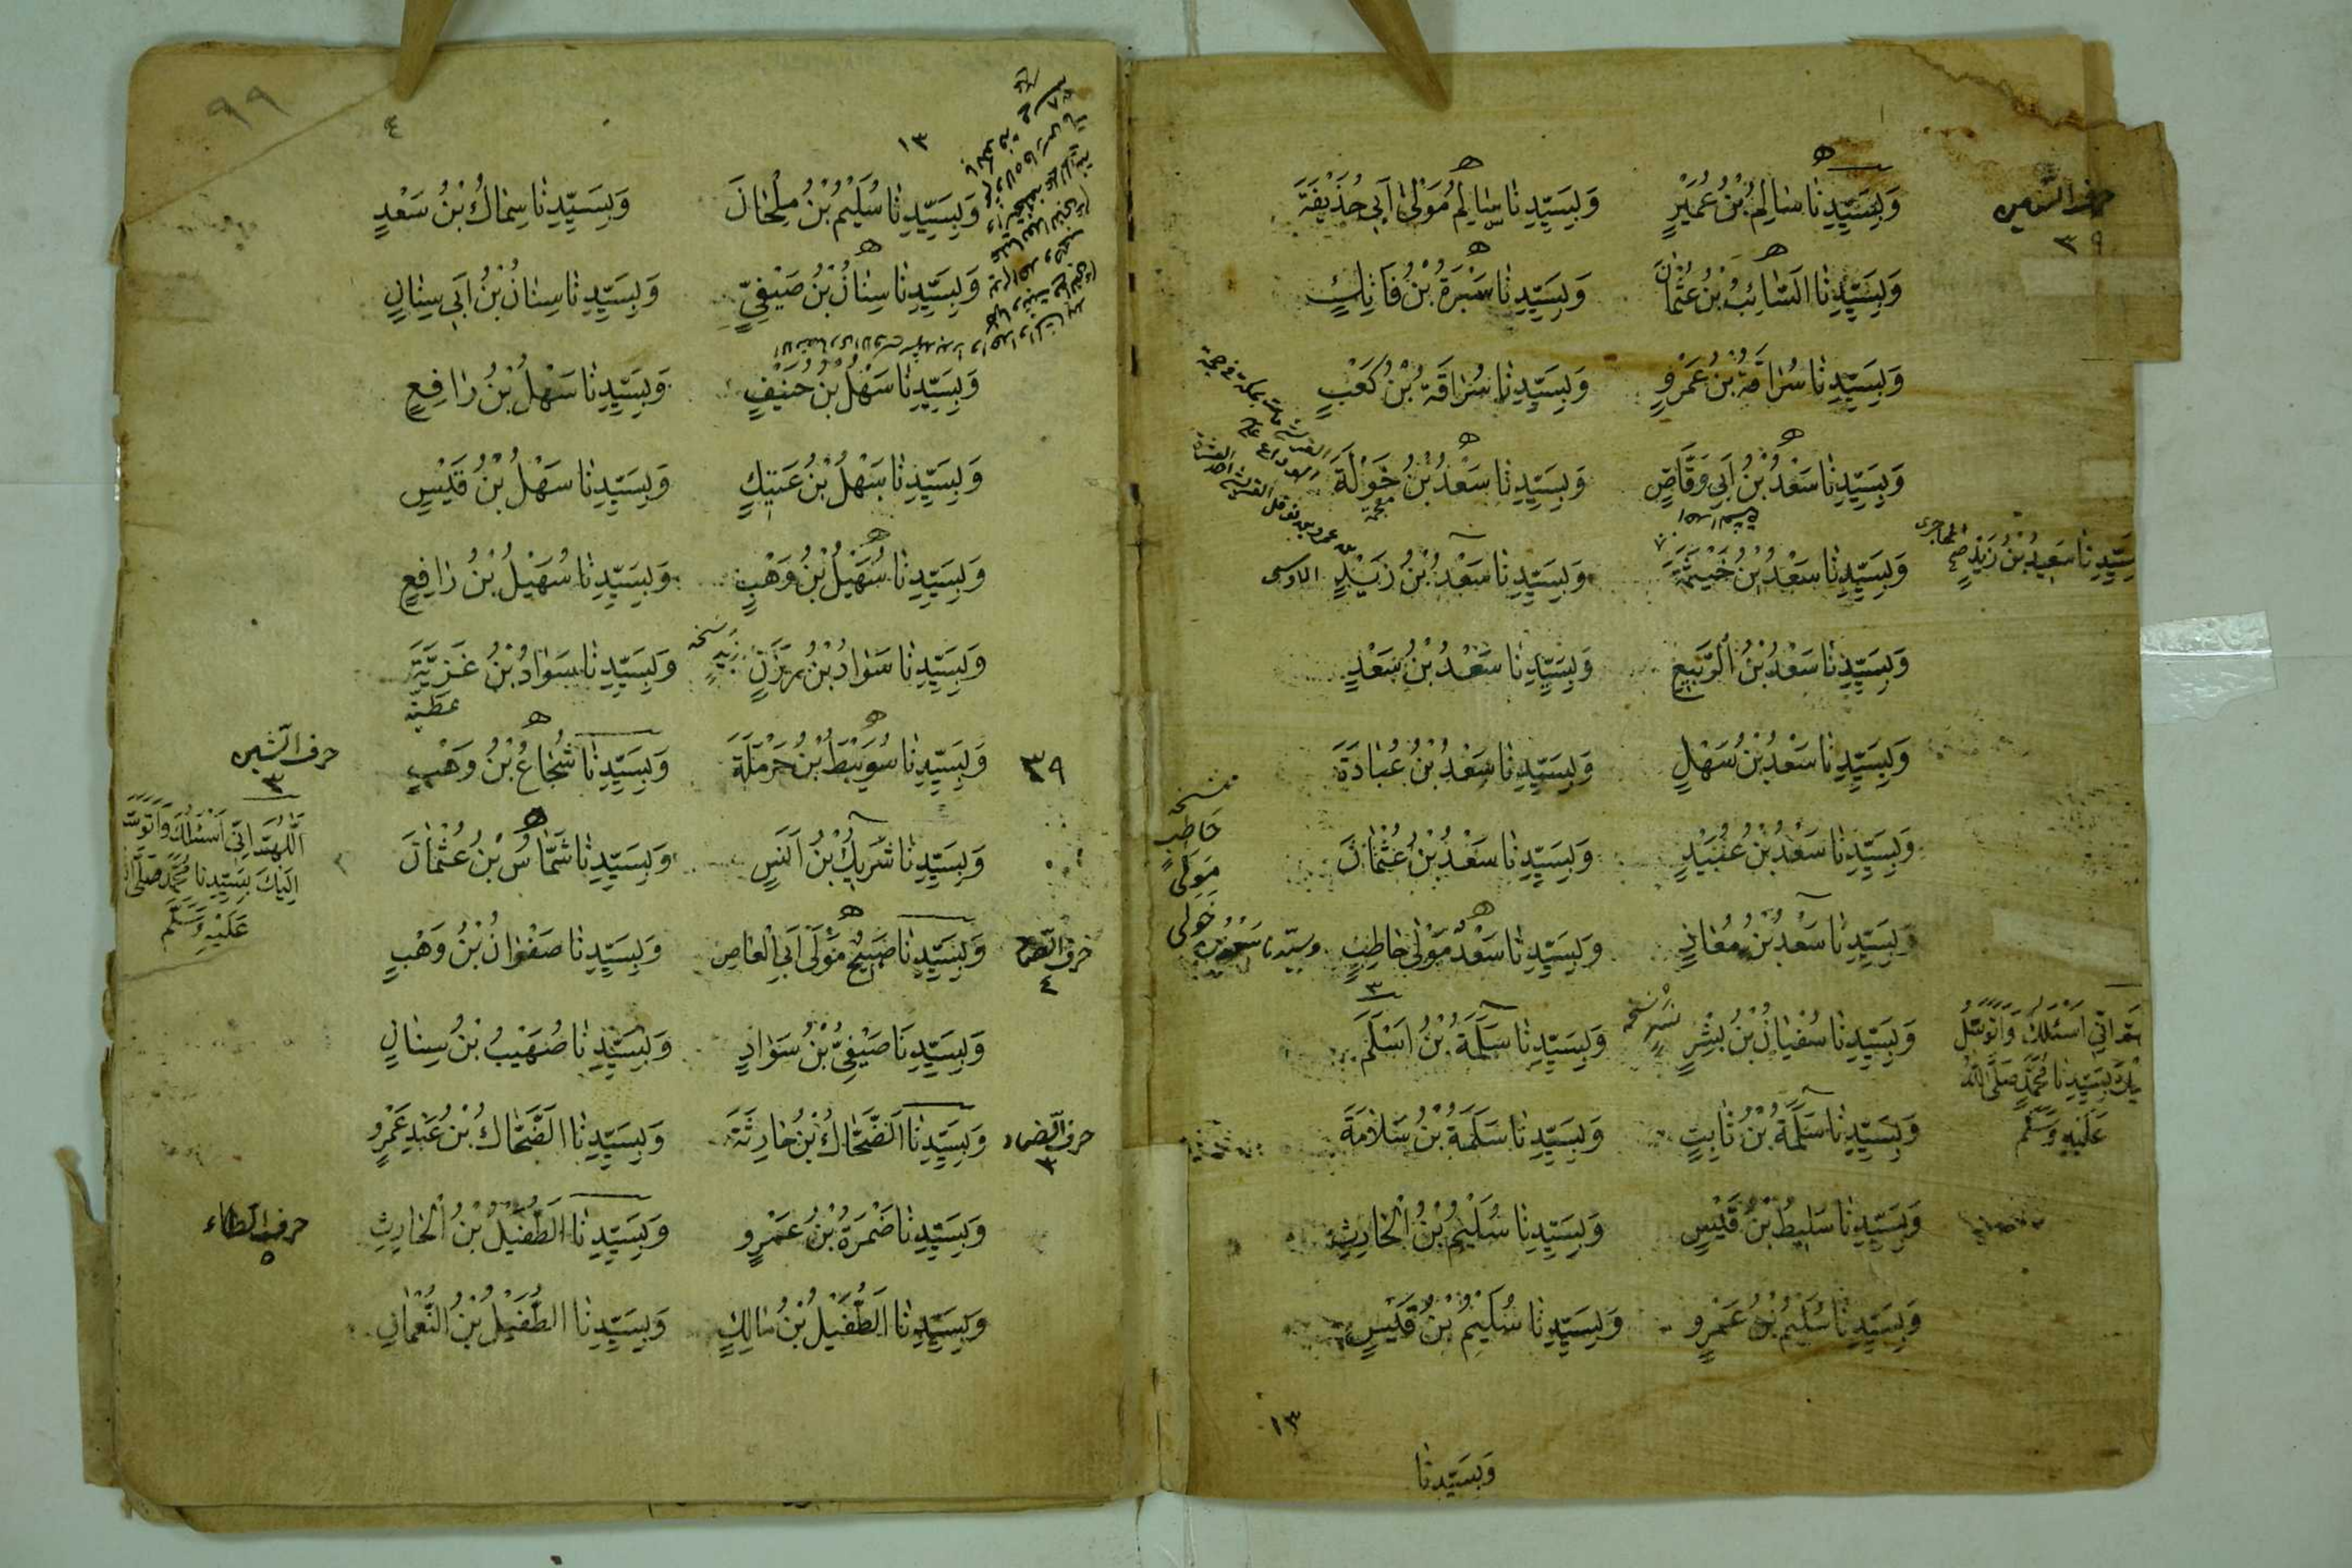 حرف السين
٣٩
وَبِسَيِّدِنَا سَالِمُ بْنُ عُمَيْرٍ وَبِسَيِّدِنَا سَالِمُ مَوْلَى اَبِى حُذَيْفَةَ
وَبِسَيِّدِنَا اَلسَّائِبُ بْنُ عُثْمَانَ وَبِسَيِّدِنَا سَبْرَةُ بْنُ فَاتِكٍ
وَبِسَيِّدِنَا سُرَاقَةُ بْنُ عَمْرٍو وَبِسَيِّدِنَا سُرَاقَةُ بْنُ كَعْبٍ
وَبِسَيِّدِنَا سَعْدُ بْنُ اَبِى وَقَّاصٍ وَبِسَيِّدِنَا سَعْدُ بْنُ خَوْلَةَ
سَيِّدِنَا سَعِيدُ بْنُ زَيْدٍ وَبِسَيِّدِنَا سَعْدُ بْنُ خَيْثَمَةَ وَبِسَيِّدِنَا سَعْدُ بْنُ زَيْدٍ الاوسى
وَبِسَيِّدِنَا سَعْدُ بْنُ الرَّبِيعِ وَبِسَيِّدِنَا سَعْدُ بْنُ سَعْدٍ
وَبِسَيِّدِنَا سَعْدُ بْنُ سُهَلٍ وَبِسَيِّدِنَا سَعْدُ بْنُ عُبَادَةَ
وَبِسَيِّدِنَا سَعْدُ بْنُ عُبَيْدٍ وَبِسَيِّدِنَا سَعْدُ بْنُ عُثْمَانَ
نسخه
خَاطِبٍ
مَوْلَى
خَولى
وَبِسَيِّدِنَا سَعْدُ بْنُ مُعَاذٍ وَبِسَيِّدِنَا سَعْدُ مَوْلَى حَاطِبٍ
وَبِسَيِّدِنَا سُفْيَانُ بْنُ بِشْرٍ نَسْرٍ نسخه وَبِسَيِّدِنَا سَلَمَةُ بْنُ اَسْلَمَ
اِنِّى اَسْئَلُكَ وَاَتَوَسَّلُ
بِسَيِّدِنَا مُحَمَّدٍ صَلَّى اللهُ
عَلَيْهِ وَسَلَّمَ
وَبِسَيِّدِنَا سَلَمَةُ بْنُ ثَابِتٍ وَبِسَيِّدِنَا سَلَمَةُ بْنُ سَلَامَةَ
وَبِسَيِّدِنَا سَلِيطُ بْنُ قَيْسٍ وَبِسَيِّدِنَا سُلَيْمُ بْنُ الْحَارِثِ
وَبِسَيِّدِنَا سُلَيْمُ بْنُ عَمْرٍو وَبِسَيِّدِنَا سُلَيْمُ بْنُ قَيْسٍ
١٣
وَبِسَيِّدِنَا
٩٩
٤
١٣
وَبِسَيِّدِنَا سُلَيْمُ بْنُ مِلْحَانَ وَبِسَيِّدِنَا سِمَاكُ بْنُ سَعْدٍ
وَبِسَيِّدِنَا سِنَانُ بْنُ صَيْفِيٍّ وَبِسَيِّدِنَا سِنَانُ بْنُ اَبِى سِنَانٍ
وَبِسَيِّدِنَا سَهْلُ بْنُ حُنَيْفٍ وَبِسَيِّدِنَا سَهْلُ بْنُ رَافِعٍ
وَبِسَيِّدِنَا سَهْلُ بْنُ عَتِيكٍ وَبِسَيِّدِنَا سَهْلُ بْنُ قَيْسٍ
وَبِسَيِّدِنَا سُهَيْلُ بْنُ وَهْبٍ وَبِسَيِّدِنَا سُهَيْلُ بْنُ رَافِعٍ
وَبِسَيِّدِنَا سَوَادُ بْنُ رِزْنٍ زَيْدٍ نسخه وَبِسَيِّدِنَا سَوَادُ بْنُ غَزِيَّةَ
عطية
٣٩ وَبِسَيِّدِنَا سُوَيْبِطُ بْنُ حَرْمَلَةَ وَبِسَيِّدِنَا شُجَاعُ بْنُ وَهْبٍ حرف الشين
٣
وَبِسَيِّدِنَا شَرِيكُ بْنُ اَنَسٍ وَبِسَيِّدِنَا شَمَّاسُ بْنُ عُثْمَانَ
اَللّٰهُمَّ اِنِّى اَسْئَلُكَ وَاَتَوَسَّلُ
اِلَيْكَ بِسَيِّدِنَا مُحَمَّدٍ صَلَّى
عَلَيْهِ وَسَلَّمَ
حرف الصاد ٤ وَبِسَيِّدِنَا صَبِيْحُ مَوْلَى اَبِى الْعَاصِ وَبِسَيِّدِنَا صَفْوَانُ بْنُ وَهْبٍ
وَبِسَيِّدِنَا صَيْفِىُّ بْنُ سَوَادٍ وَبِسَيِّدِنَا صُهَيْبُ بْنُ سِنَانٍ
حرف الضاد ٣ وَبِسَيِّدِنَا اَلضَّحَّاكُ بْنُ حَارِثَةَ وَبِسَيِّدِنَا الضَّحَّاكُ بْنُ عَبْدِ عَمْرٍو
وَبِسَيِّدِنَا ضَمْرَةُ بْنُ عَمْرٍو وَبِسَيِّدِنَا الطُّفَيْلُ بْنُ الْحَارِثِ حرف الطاء
٥
وَبِسَيِّدِنَا اَلطُّفَيْلُ بْنُ مَالِكٍ وَبِسَيِّدِنَا الطُّفَيْلُ بْنُ النُّعْمَانِ